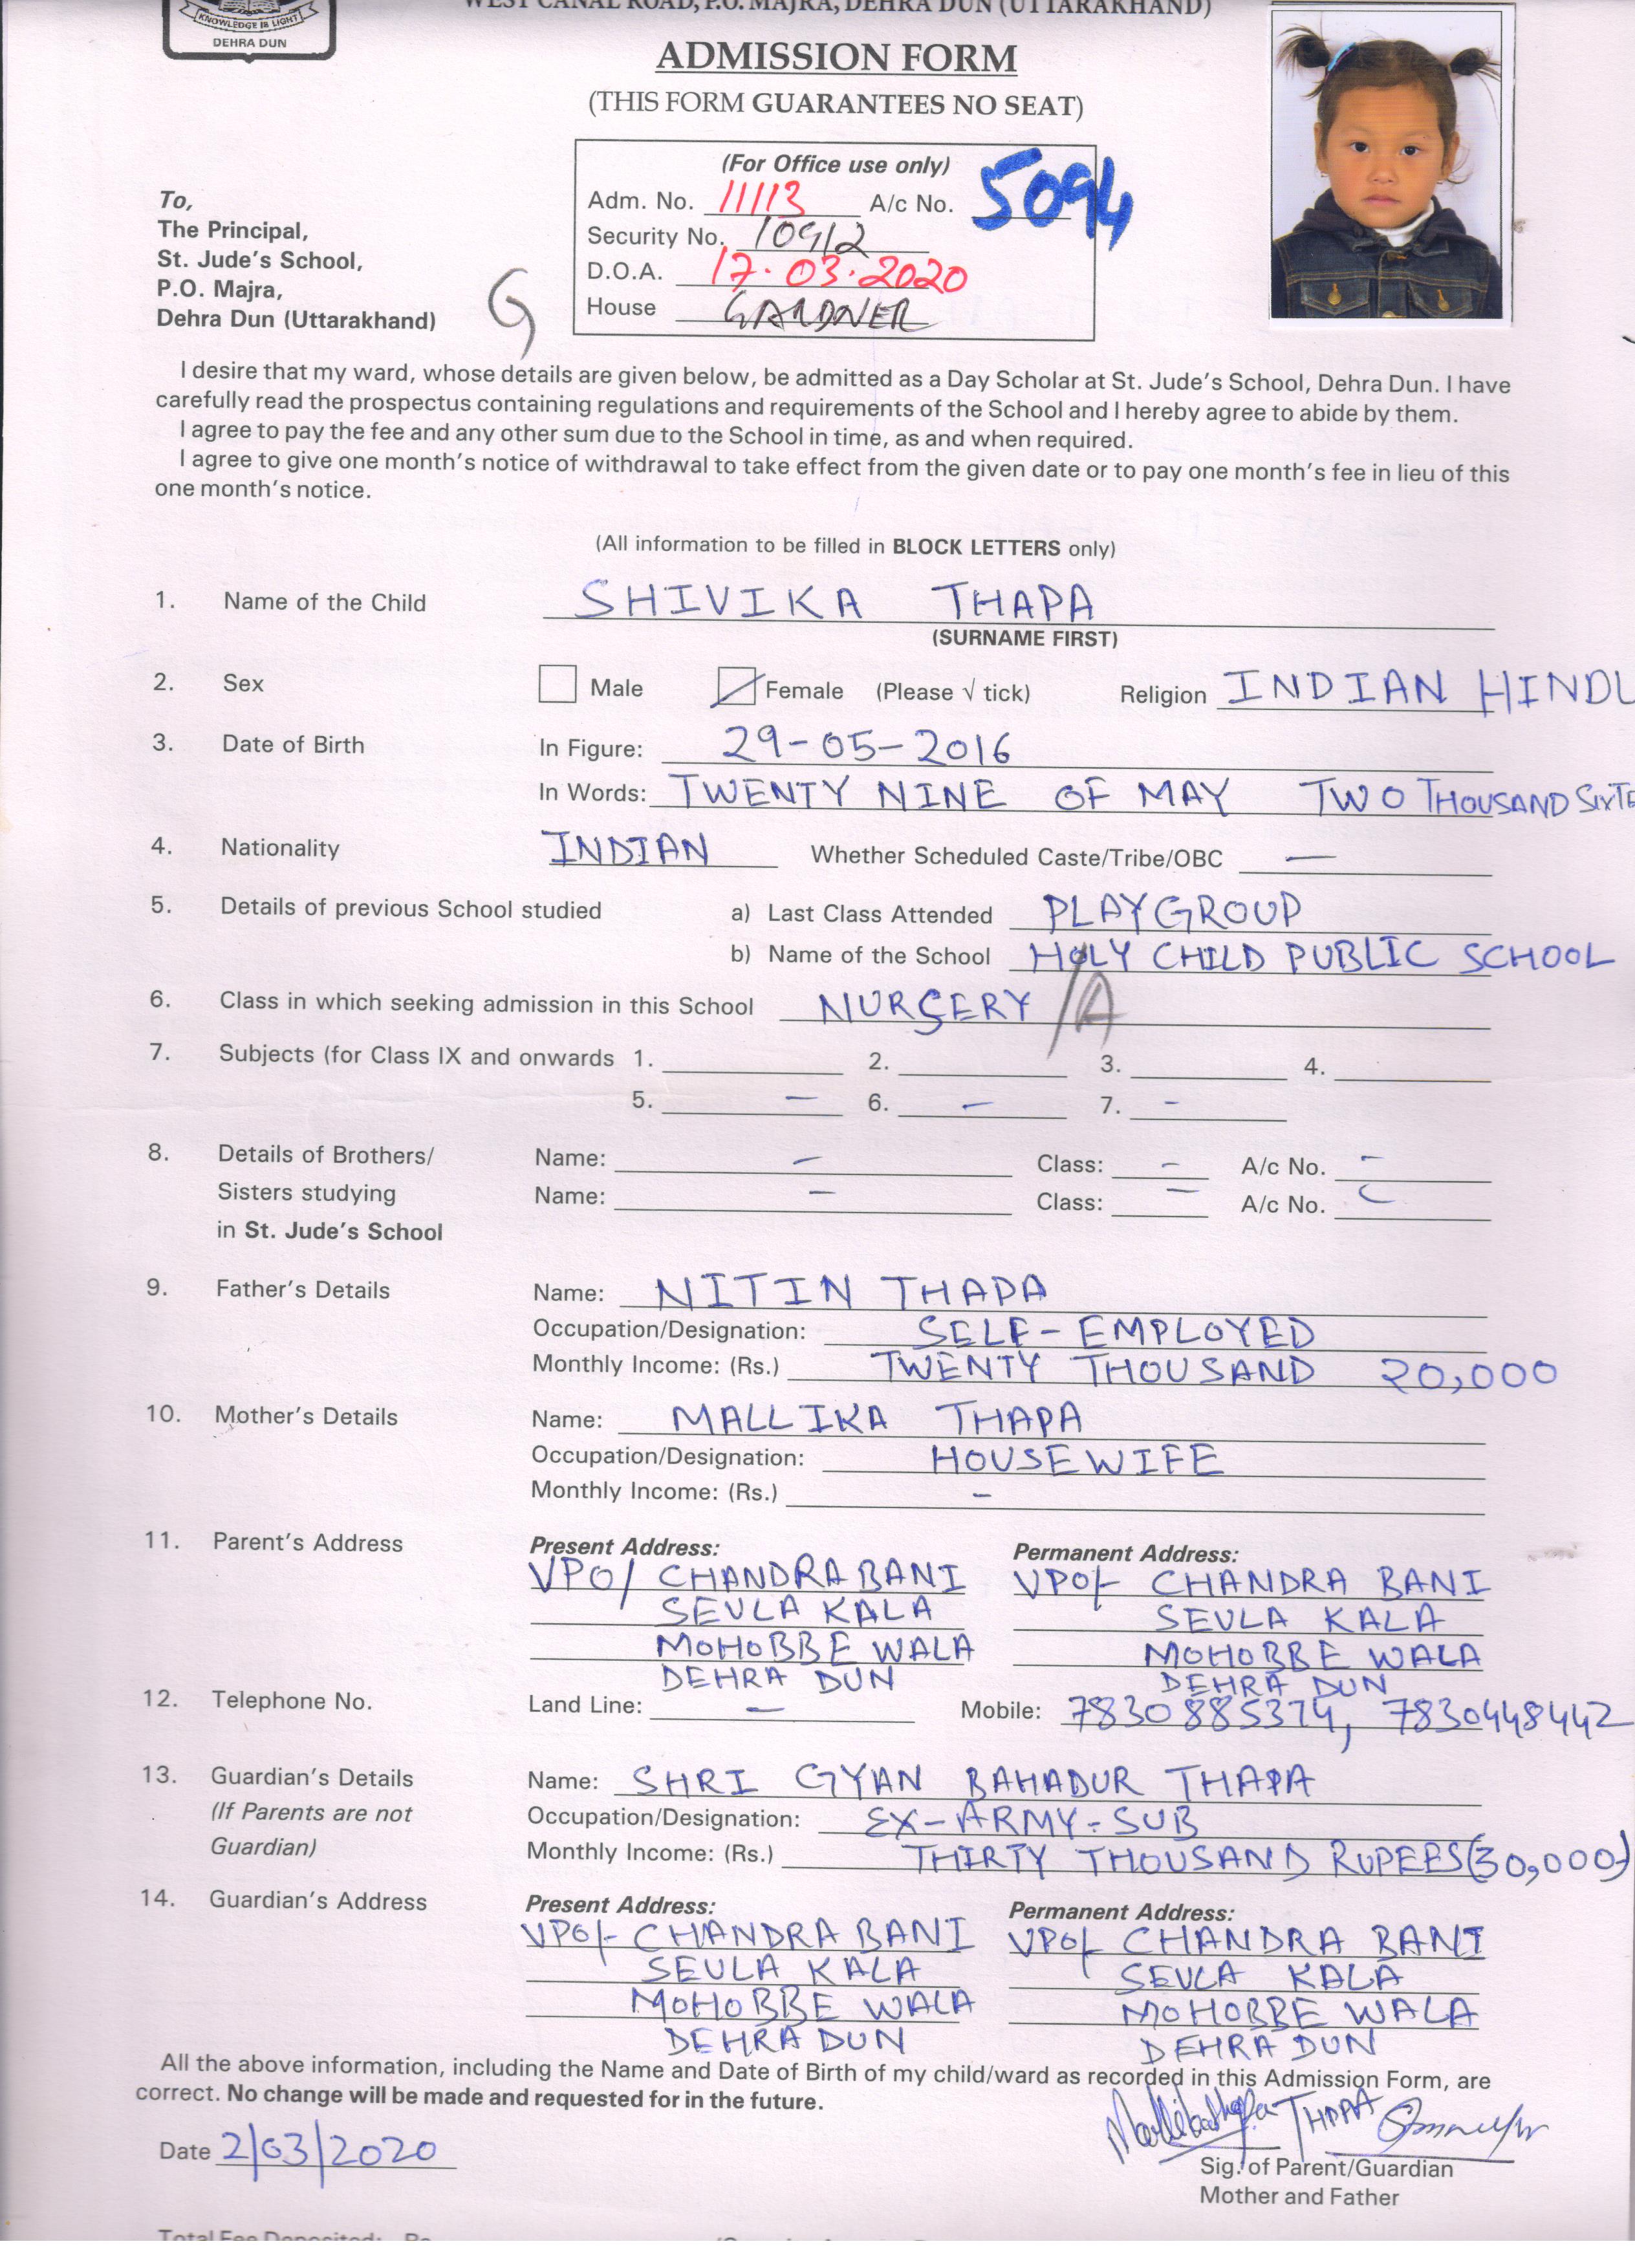 KNOWLEDGE IS LIGHT
DEHRA DUN
WEST CANAL ROAD, P.O. MAJRA, DEHRA DUN (UTTARAKHAND)
ADMISSION FORM
(THIS FORM GUARANTEES NO SEAT)
(For Office use only)
Adm. No. 11113 A/c No. 5094
Security No. 10912
D.O.A. 17.03.2020
House GARDNER
To,
The Principal,
St. Jude's School,
P.O. Majra,
Dehra Dun (Uttarakhand)
G
I desire that my ward, whose details are given below, be admitted as a Day Scholar at St. Jude's School, Dehra Dun. I have
carefully read the prospectus containing regulations and requirements of the School and I hereby agree to abide by them.
I agree to pay the fee and any other sum due to the School in time, as and when required.
I agree to give one month's notice of withdrawal to take effect from the given date or to pay one month's fee in lieu of this
one month's notice.
(All information to be filled in BLOCK LETTERS only)
1. Name of the Child SHIVIKA THAPA
(SURNAME FIRST)
2. Sex Male Female (Please √ tick) Religion INDIAN HINDU
3. Date of Birth In Figure: 29-05-2016
In Words: TWENTY NINE OF MAY TWO THOUSAND SIXTE
4. Nationality INDIAN Whether Scheduled Caste/Tribe/OBC —
5. Details of previous School studied a) Last Class Attended PLAYGROUP
b) Name of the School HOLY CHILD PUBLIC SCHOOL
6. Class in which seeking admission in this School NURSERY /A
7. Subjects (for Class IX and onwards 1. 2. 3. 4.
5. — 6. — 7. -
8. Details of Brothers/ Name: — Class: - A/c No. -
Sisters studying Name: — Class: — A/c No.
in St. Jude's School
9. Father's Details Name: NITIN THAPA
Occupation/Designation: SELF-EMPLOYED
Monthly Income: (Rs.) TWENTY THOUSAND 20,000
10. Mother's Details Name: MALLIKA THAPA
Occupation/Designation: HOUSEWIFE
Monthly Income: (Rs.) -
11. Parent's Address Present Address: Permanent Address:
VPO/ CHANDRABANI VPO/- CHANDRA BANI
SEVLA KALA SEVLA KALA
MOHOBBE WALA MOHOBBE WALA
DEHRA DUN DEHRA DUN
12. Telephone No. Land Line: — Mobile: 7830885374, 7830448442
13. Guardian's Details Name: SHRI GYAN BAHADUR THAPA
(If Parents are not Occupation/Designation: EX-ARMY-SUB
Guardian) Monthly Income: (Rs.) THIRTY THOUSAND RUPEES(30,000)
14. Guardian's Address Present Address: Permanent Address:
VPO/- CHANDRA BANI VPO/- CHANDRA BANI
SEVLA KALA SEVLA KALA
MOHOBBE WALA MOHOBBE WALA
DEHRA DUN DEHRA DUN
All the above information, including the Name and Date of Birth of my child/ward as recorded in this Admission Form, are
correct. No change will be made and requested for in the future.
THAPA
Date 2/03/2020
Sig. of Parent/Guardian
Mother and Father
Total Fee Deposited: Rs.